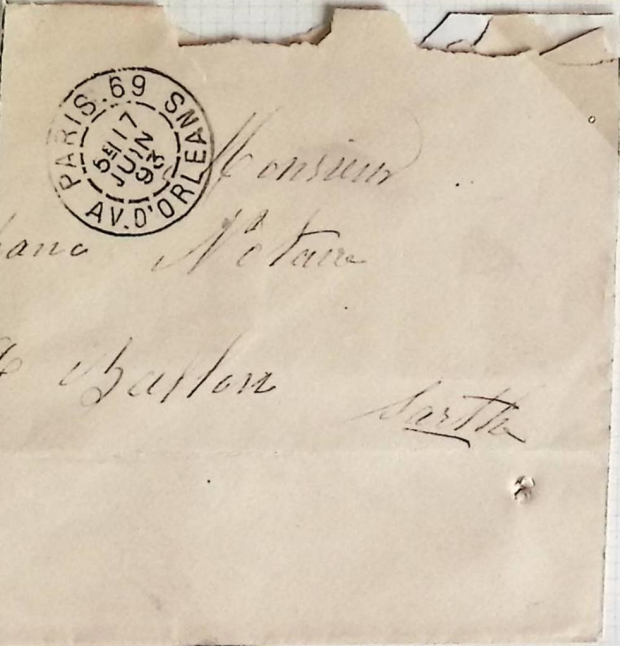 PARIS.69 AV.D'ORLEANS
5E 17
JUIN
93
Monsieur
Notaire
Ballon
Sarthe